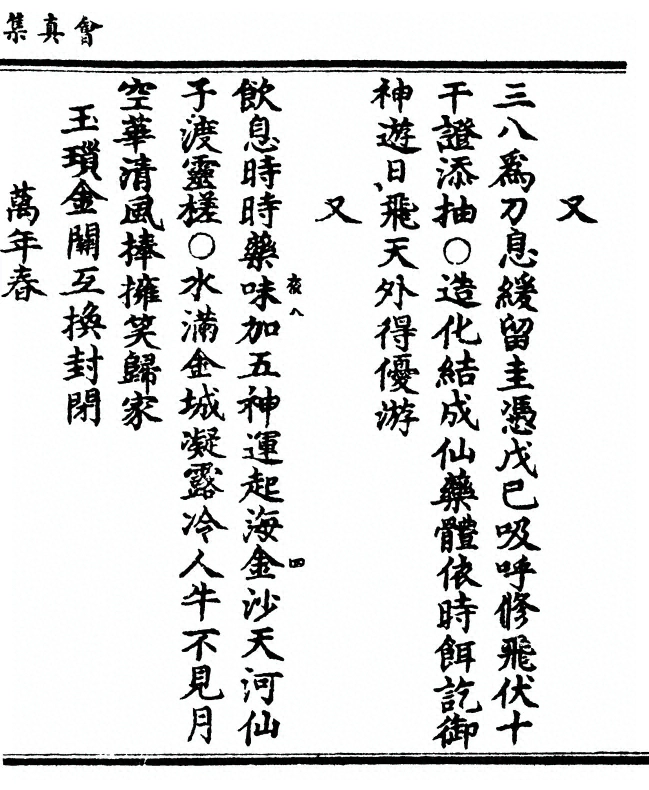 會真集
又
三八爲刀息緩留圭憑戊巳吸呼修飛伏十
干證添抽○造化結成仙藥體依時餌訖御
神遊日飛天外得優游
又
飲息時時藥味加五神運起海金沙天河仙
夜八
四
子渡靈槎○水滿金城凝露冷人牛不見月
空華清風捧擁笑歸家
玉瑣金關互換封閉
萬年春